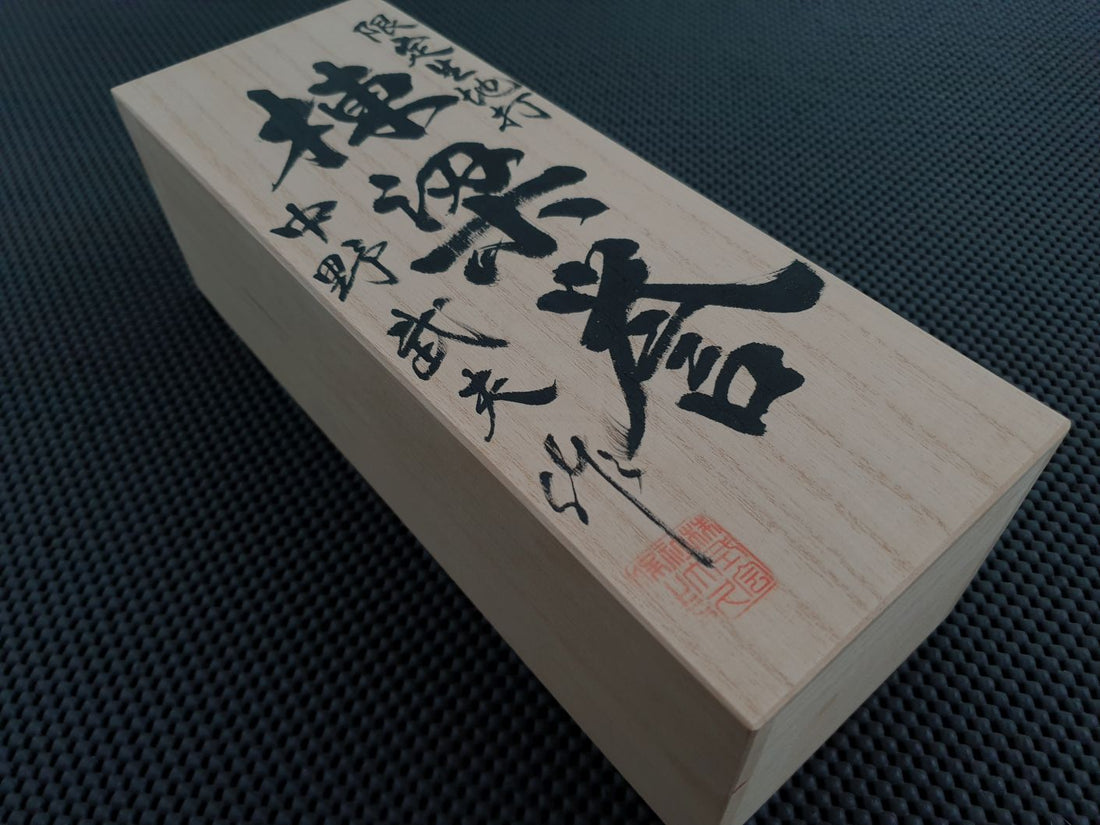 限定生地打
棟梁誉
中野武夫作